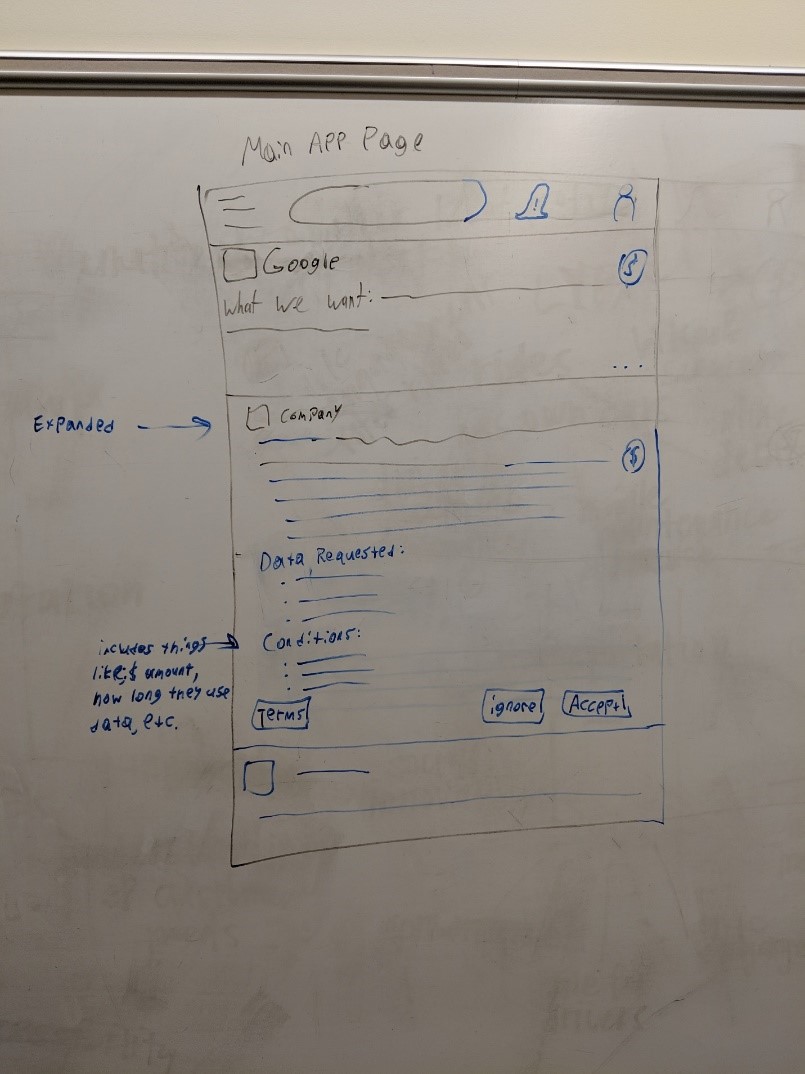 Main APP Page
!
Google
$
What we want:
...
Expanded
Company
$
Data Requested:
Conditions:
includes things
like; $ amount,
how long they use
data, etc.
Terms
ignore
Accept